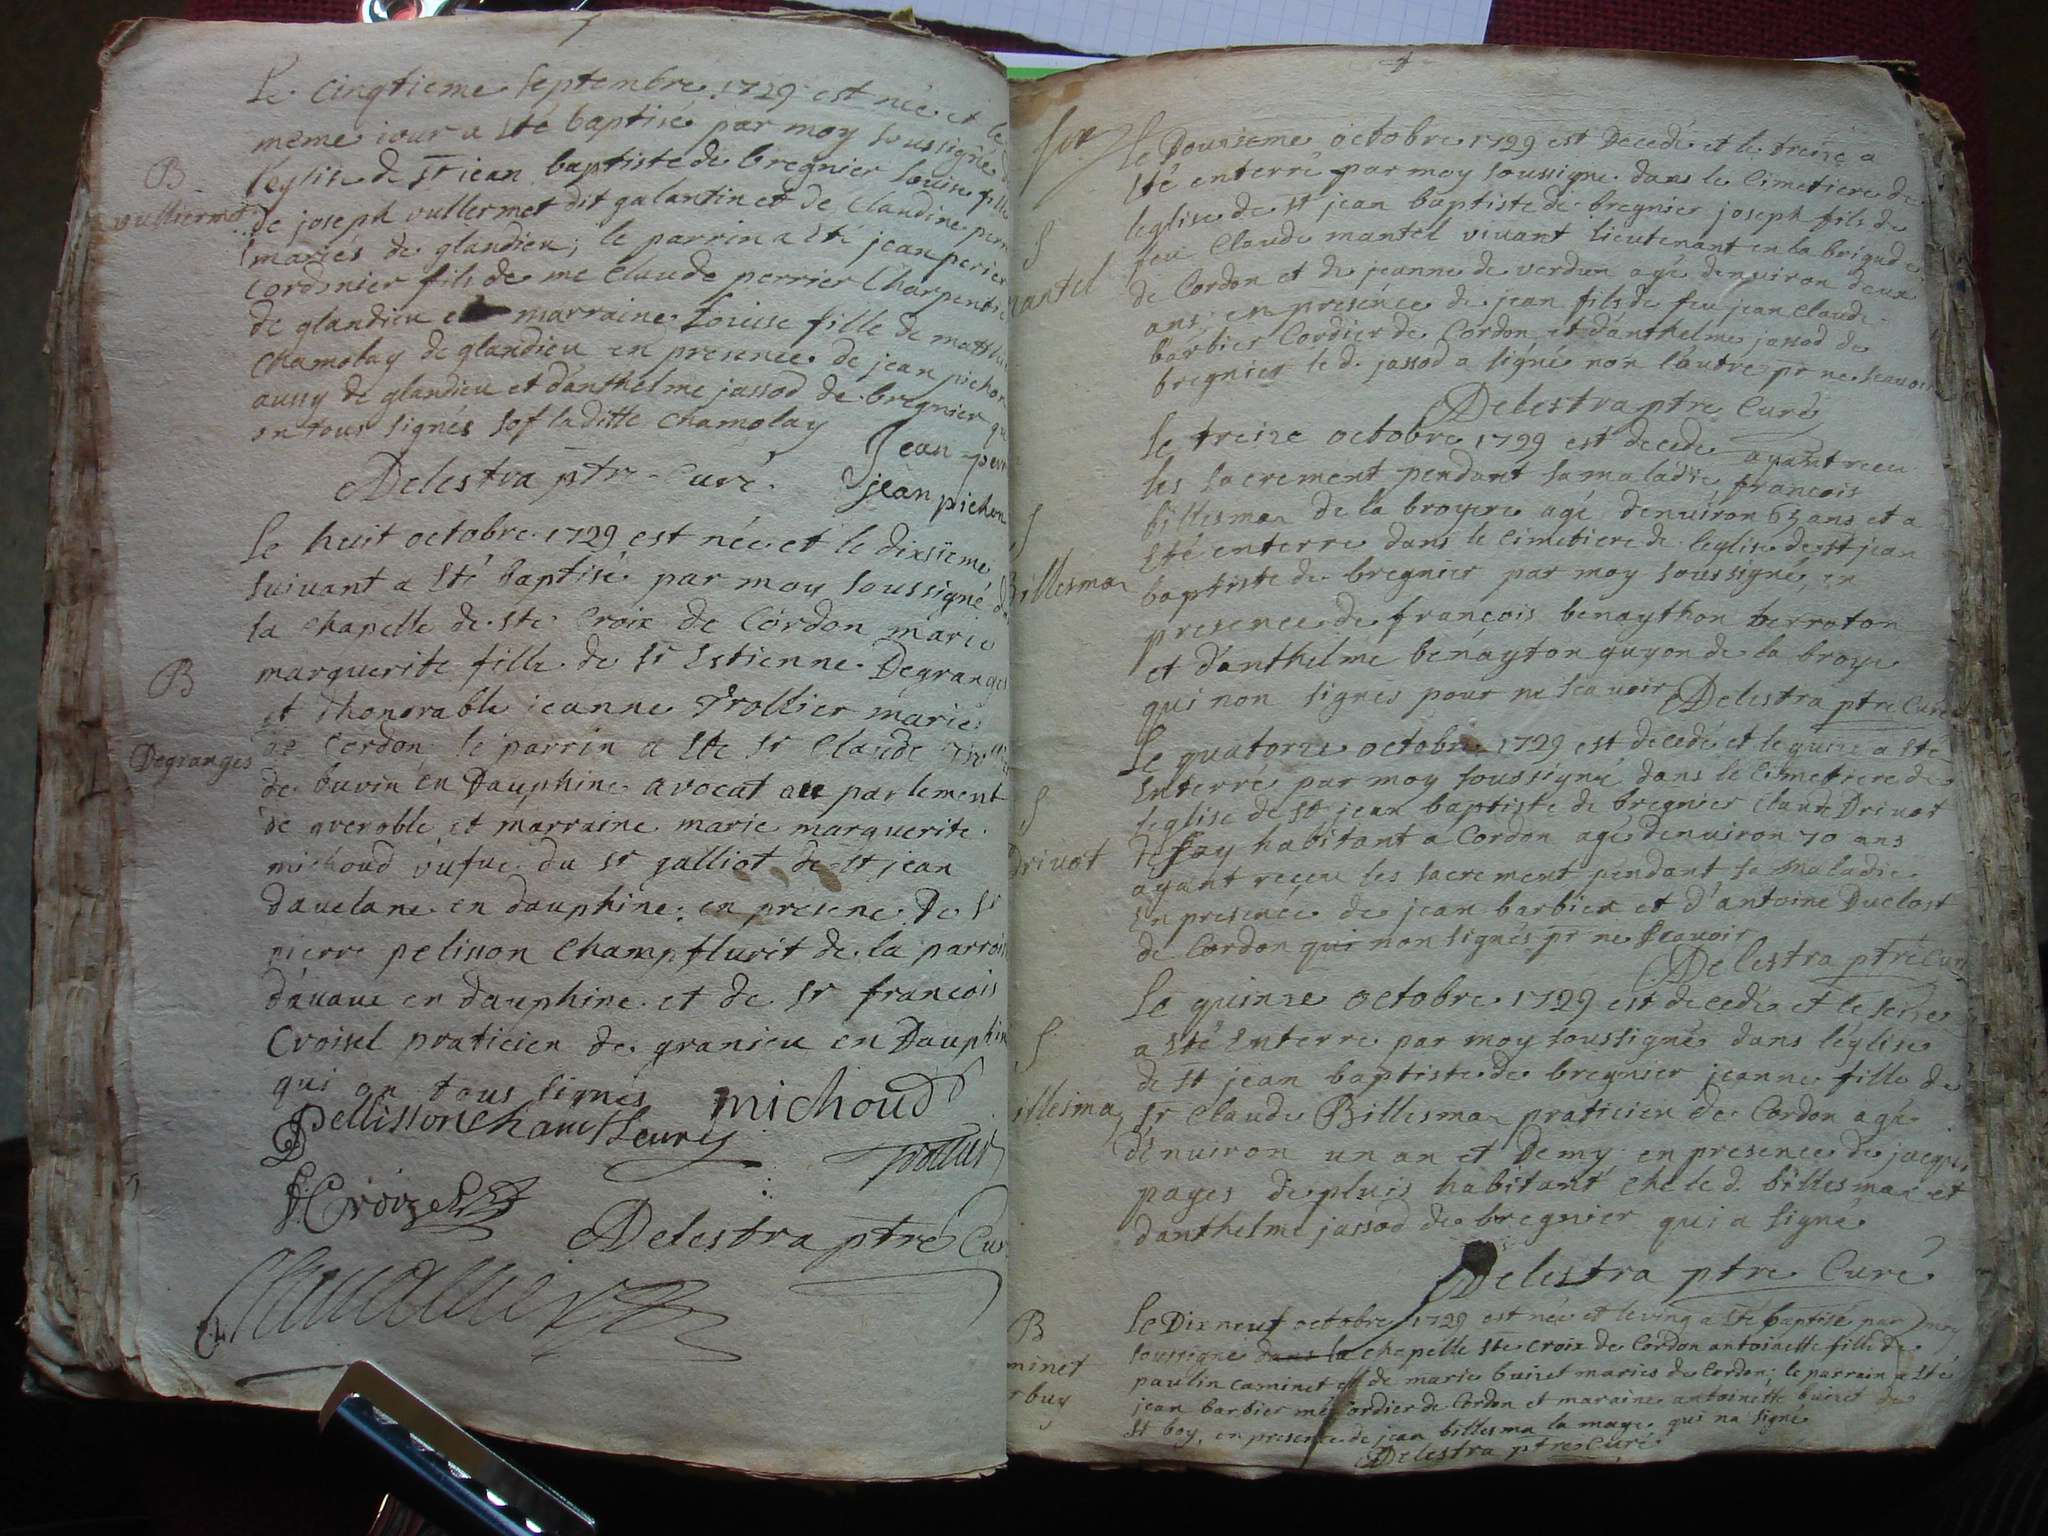 Le cinqtieme septembre 1729 est née et le
meme jour a sté baptisé par moy soussigné
B
leglise de st jean baptiste de bregnier Louise fille
vulliermet
de joseph vullermet dit galantin et de Claudine perr
mariés de glandieu; le parrin a sté jean perier
cordonier fils de me Claude perrier Charpentie
de glandieu et marraine Louise fille de matthi
Chamolay de glandieu en presence de jean pichon
aussy de glandieu et danthelme jassod de bregnier qu
on tous signés sof laditte Chamolay
Jean perr
Delestra ptre Curé
jean pichon
Le huit octobre 1729 est née et le dixsieme
suivant a sté baptisé par moy soussigné d
la chapelle de ste Croix de Cordon marie
marguerite fille de sr Estienne Degranges
B
et dhonorable jeanne Trollier mariés
de Cordon le parrin a ste sr Claude
Degranges
de buvin en Dauphine avocat au parlement
de greroble et marraine marie marguerite
michoud vufue du sr galliot de st jean
dauelane en dauphine; en presence De sr
pierre pelisson Champflurit de la parrois
dauaue en dauphine et de sr francois
Croisel praticien de granieu en Dauphin
qui on tous signés
michoud
Pellisson Chamfleury
Croizel
Delestra ptre Cur
Le Dousieme octobre 1729 est Decedé et le treise a
sté enterré par moy soussigné dans le Cimetiere de
leglise de st jean baptiste de bregnier joseph fils de
S
feu Claude mantel vivant lieutenant en la brigade
mantel
de Cordon et de jeanne de verdun agé denuiron deux
ans; en presence de jean fils de feu jean Claude
barbier Cordier de Cordon et danthelme jassod de
bregnier le d. jassod a signé non lautre pr ne scauoir
Delestra ptre Curé
Le treize octobre 1729 est decede ayant receu
les sacrement pendant sa maladie francois
S
billesmaz de la broyere agé denuiron 65 ans et a
sté enterre dans le Cimetiere de leglise de st jean
billesmaz
baptiste de bregnier par moy soussigné, en
presence de françois benaython berroton
et danthelme benayton guyon de la broye
qui non signés pour ne scauoir Delestra ptre Curé
Le quatorze octobre 1729 est decedé et le quize a sté
Enterré par moy soussigné dans le Cimetiere de
S
leglise de st jean baptiste de bregnier Claude Drivot
Drivot
de fay habitant a Cordon agé denuiron 70 ans
ayant reçeu les sacrement pendant sa maladie
En presence de jean barbier et d'antoine Duclost
de Cordon qui non signés pr ne scauoir
Delestra ptre Cur
Le quinze octobre 1729 est decedé et le seize
S
a sté Enterre par moy soussigné dans léglise
de st jean baptiste de bregnier jeanne fille de
illesmaz
sr Claude Billesmaz praticien de Cordon agé
dénuiron un an et Demy en presence de jacque
pages de pluis habitant che le d. billesmaz et
danthelme jassod de bregnier qui a signé
Delestra ptre Curé
B
Le Dix neuf octobre 1729 est née et le ving a sté baptisé par moy
soussigne dans la chapelle ste croix de Cordon antoinette fille de
minet
paulin caminet et de marie buinet mariés de Cordon; le parrain a sté
rbuy
jean barbier me Cordier de Cordon et maraine antoinette buinet de
st boy, en presence de jean billesma la mage qui na signé
Delestra ptre Curé